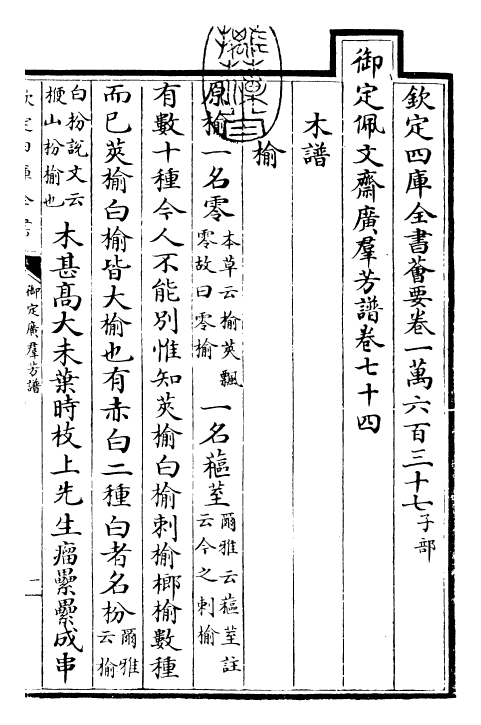 欽定四庫全書薈要卷一萬六百三十七 子部
御定佩文齋廣羣芳譜卷七十四
木譜
榆
原榆一名零 本草云榆莢飄零故曰零榆 一名藲荎 爾雅云藲荎註云今之刺榆
有數十種今人不能別惟知莢榆白榆刺榆榔榆數種
而已莢榆白榆皆大榆也有赤白二種白者名枌 爾雅云榆
白枌說文云楩山枌榆也 木甚高大未葉時枝上先生瘤纍纍成串
欽定四庫全書
御定廣羣芳譜
一